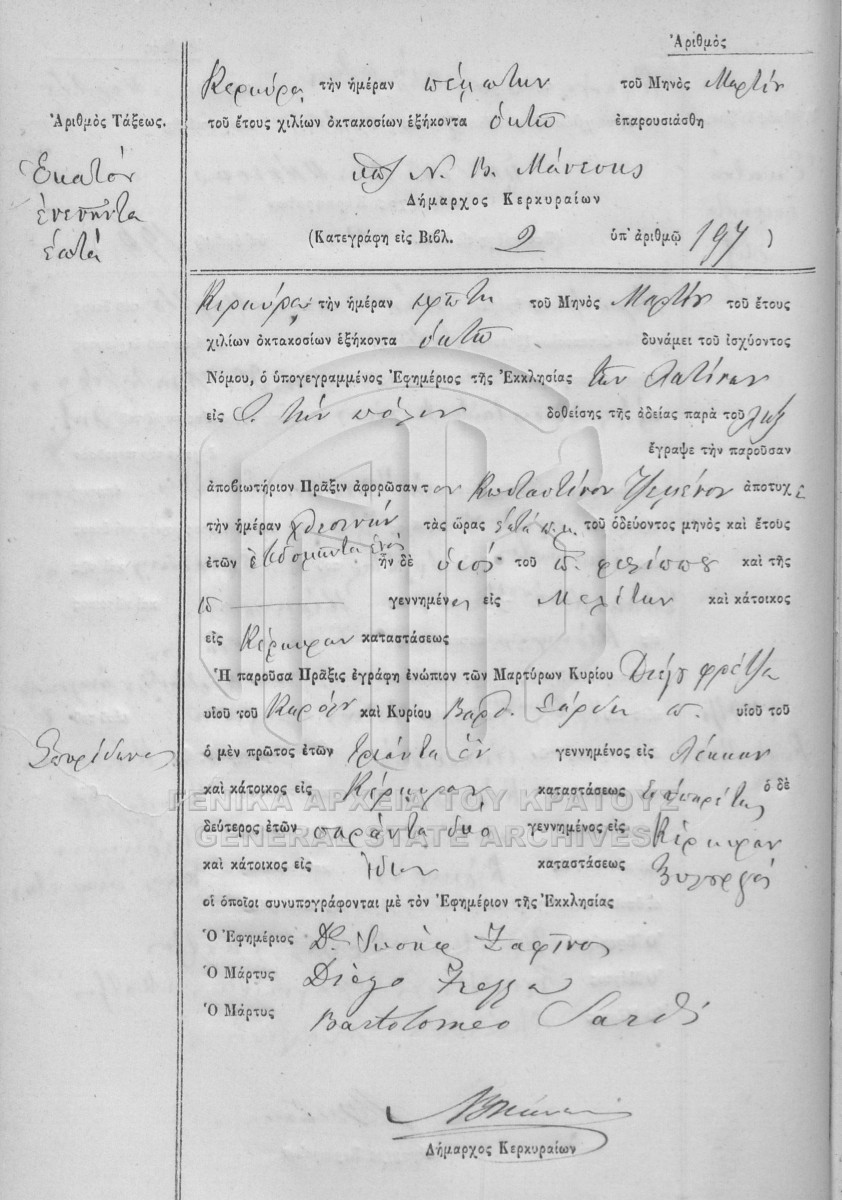 Ἀριθμὸς
Κερκύρα τὴν ἡμέραν πέμπτην τοῦ Μηνὸς Μαρτίου
Ἀριθμὸς Τάξεως.
τοῦ ἔτους χιλίων ὀκτακοσίων ἑξήκοντα ὀκτὼ ἐπαρουσιάσθη
Ἑκατὸν
ἐνενήντα
ἑπτά
Ν. Β. Μάνεσης
Δήμαρχος Κερκυραίων
(Κατεγράφη εἰς Βιβλ. 2 ὑπ' ἀριθμῷ 197 )
Κερκύρα τὴν ἡμέραν πρώτη τοῦ Μηνὸς Μαρτίου τοῦ ἔτους
χιλίων ὀκτακοσίων ἑξήκοντα ὀκτὼ δυνάμει τοῦ ἰσχύοντος
Νόμου, ὁ ὑπογεγραμμένος Ἐφημέριος τῆς Ἐκκλησίας τῶν Λατίνων
εἰς τὴν πόλιν δοθείσης τῆς ἀδείας παρὰ τοῦ
ἔγραψε τὴν παροῦσαν
ἀποβιωτήριον Πρᾶξιν ἀφορῶσαν τον Κωσταντῖνον ἀποτυχ
τὴν ἡμέραν χθεσινὴν τὰς ὥρας ἑπτὰ π.μ. τοῦ ὁδεύοντος μηνὸς καὶ ἔτους
ἐτῶν ἑβδομῆντα ἑνὸς ἦν δὲ υἱός τοῦ π. Φιλίππου καὶ τῆς
γεννημένος εἰς Μελίτην καὶ κάτοικος
εἰς Κέρκυραν καταστάσεως
Ἡ παροῦσα Πρᾶξις ἐγράφη ἐνώπιον τῶν Μαρτύρων Κυρίου Διέγο Φρέτζα
υἱοῦ τοῦ Καρόλου καὶ Κυρίου Βαρθ. Σάρδη π. υἱοῦ τοῦ
Σπυρίδωνος
ὁ μὲν πρῶτος ἐτῶν τριάντα ἓν γεννημένος εἰς
καὶ κάτοικος εἰς Κέρκυραν καταστάσεως ὑπηρέτης ὁ δὲ
δεύτερος ἐτῶν σαράντα δύο γεννημένος εἰς Κέρκυραν
καὶ κάτοικος εἰς Ἰδίαν καταστάσεως Ξυλουργός
οἱ ὁποῖοι συνυπογράφονται μὲ τὸν Ἐφημέριον τῆς Ἐκκλησίας
Ὁ Ἐφημέριος
Ὁ Μάρτυς Diego
Ὁ Μάρτυς Bartolomeo Sardi
Δήμαρχος Κερκυραίων
ΓΕΝΙΚΑ ΑΡΧΕΙΑ ΤΟΥ ΚΡΑΤΟΥΣ
GENERAL STATE ARCHIVES